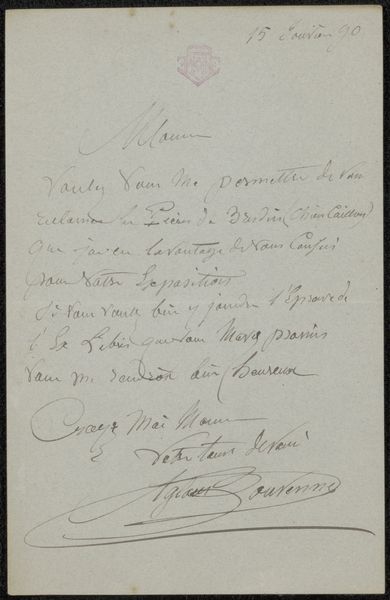 15 Janvier 90
Monsieur
Voulez Vous Me permettre de vous
réclamer les Pièces de Bresdin (Chien Caillou)
que j'ai eu l'avantage de vous Confier
pour Votre Exposition
Si Vous Voulez bien y joindre l'Epreuve de
l'Ex Libris que vous M'avez promis
Vous me rendrez bien heureux
Croyez Moi Monsieur
Votre tout dévoué
Aglaüs Bouvenne